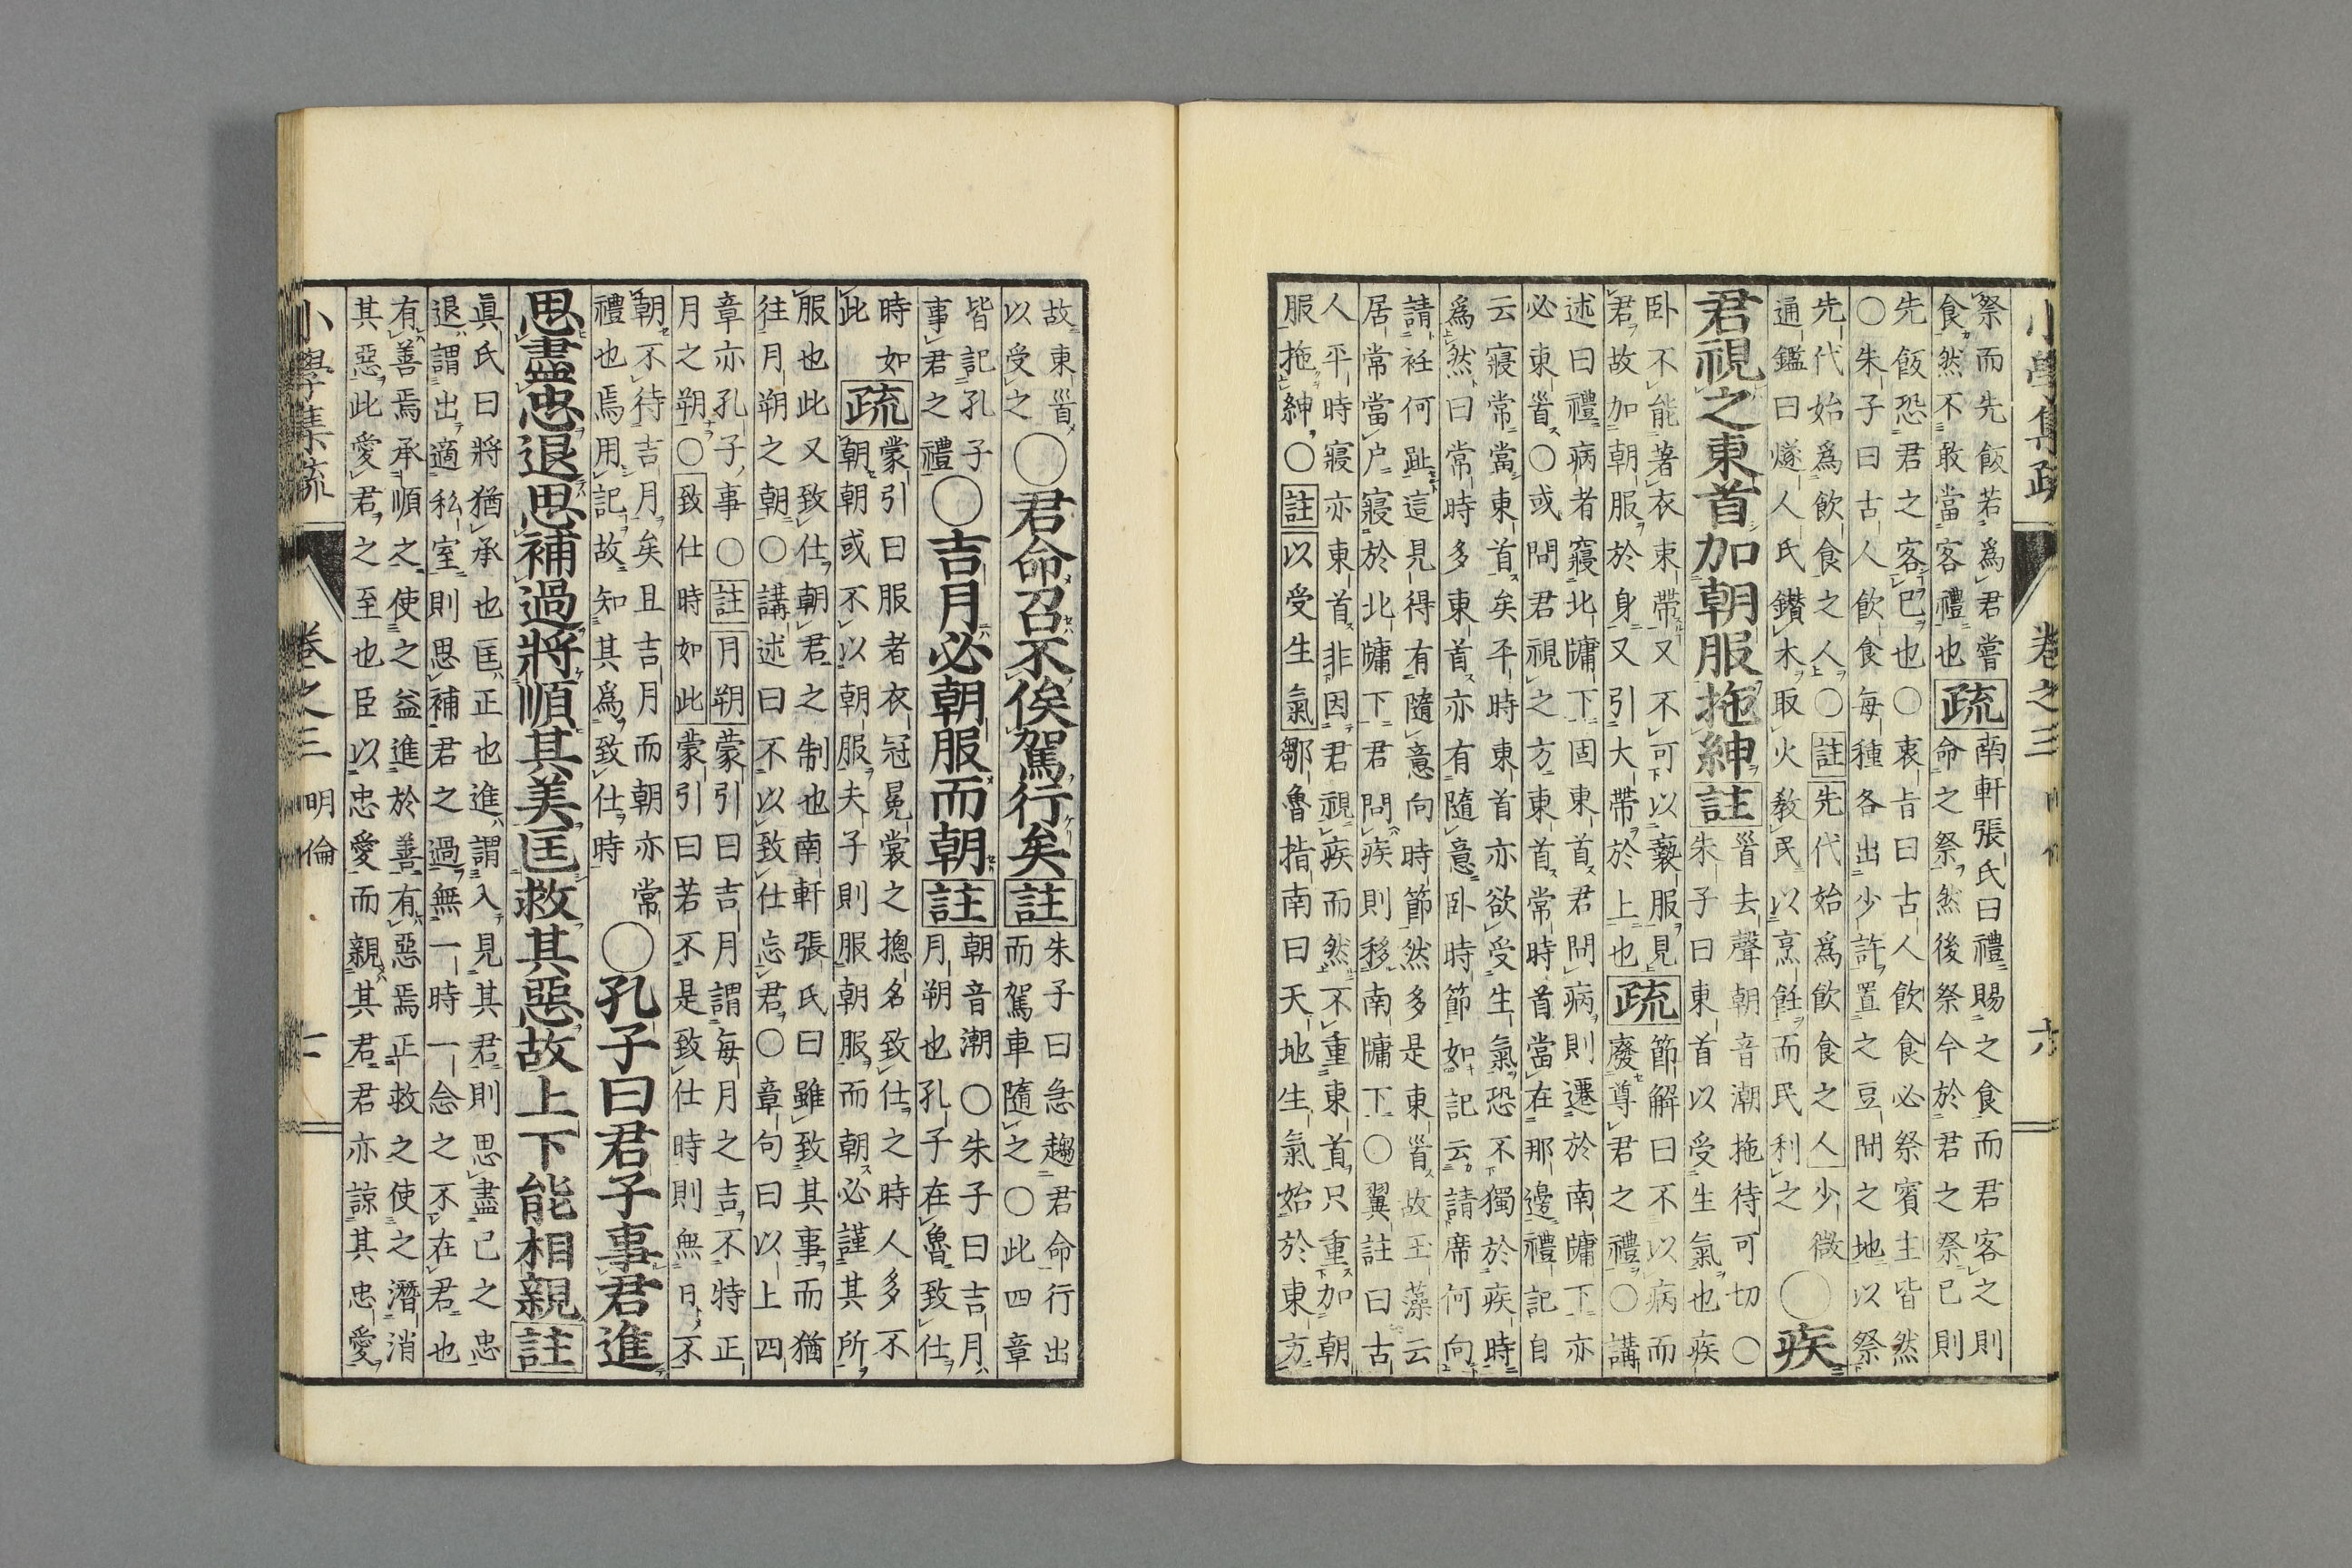 小學集疏 卷之三 六
祭而先飯若爲君嘗
食然不敢當客禮也
疏
南軒張氏曰禮賜之食而君客之則
命之祭然後祭今於君之祭已則
先飯恐君之客己也○衷旨曰古人飲食必祭賓主皆然
○朱子曰古人飲食每種各出少許置之豆間之地以祭
先代始爲飲食之人○註先代始爲飲食之人少微
通鑑曰燧人氏鑽木取火敎民以烹飪而民利之
○疾
君視之東首加朝服拖紳註
首去聲朝音潮拖待可切○
朱子曰東首以受生氣也疾
卧不能著衣束帶又不可以褻服見
君故加朝服於身又引大帶於上也
疏
節解曰不以病而
廢尊君之禮○講
述曰禮病者寢北牖下固東首君問病則遷於南牖下亦
必東首○或問君視之方東首常時首當在那邊禮記自
云寢常當東首矣平時東首亦欲受生氣恐不獨於疾時
爲然曰常時多東首亦有隨意卧時節如記云請席何向
請衽何趾這見得有隨意向時節然多是東首故玉藻云
居常當户寢於北牖下君問疾則移南牖下○翼註曰古
人平時寢亦東首非因君視疾而然不重東首只重加朝
服拖紳○註以受生氣鄒魯指南曰天地生氣始於東方
故東首
以受之
○君命召不俟駕行矣註
朱子曰急趨君命行出
而駕車隨之○此四章
皆記孔子
事君之禮
○吉月必朝服而朝註
朝音潮○朱子曰吉月
月朔也孔子在魯致仕
時如
此
疏
蒙引曰服者衣冠冕裳之摠名致仕之時人多不
朝朝或不以朝服夫子則服朝服而朝必謹其所
服也此又致仕朝君之制也南軒張氏曰雖致其事而猶
往月朔之朝○講述曰不以致仕忘君○章句曰以上四
章亦孔子事○註月朔蒙引曰吉月謂每月之吉不特正
月之朔○致仕時如此蒙引曰若不是致仕時則無日不
朝不待吉月矣且吉月而朝亦常
禮也焉用記故知其爲致仕時
○孔子曰君子事君進
思盡忠退思補過將順其美匡救其惡故上下能相親註
眞氏曰將猶承也匡正也進謂入見其君則思盡己之忠
退謂出適私室則思補君之過無一時一念之不在君也
有善焉承順之使之益進於善有惡焉正救之使之潛消
其惡此愛君之至也臣以忠愛而親其君君亦諒其忠愛
小學集疏 卷之三 明倫